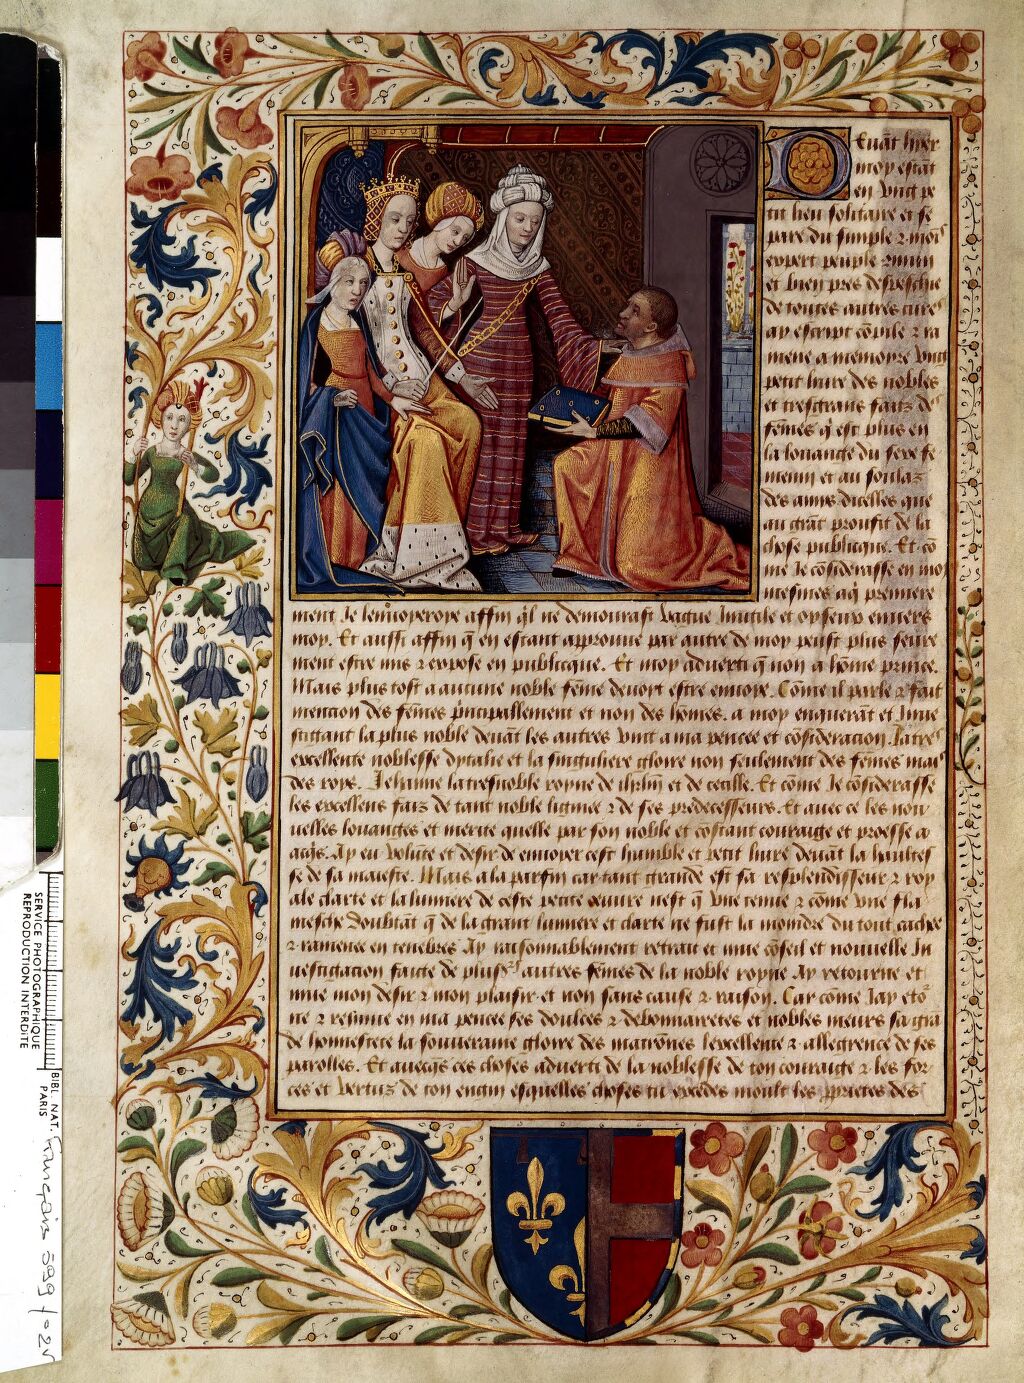 Evāt hyer
moy estāt
en vnīt pe
tit lieu solitaire et se
pare du simple ⁊ moīs
expert peuple ⁊ mīn
et bien pres despeschie
de toutes autres cures
ay escript cōpile ⁊ ra
mene a memoire vnīt
petit liure des nobles
et tresgrans faitz de
fēmes q̄ est plus en
la louange du sexe fe
menin et au soulaz
des amis dicelles que
au grāt proufit de la
chose publicque. Et cō
me Je cōsiderasse en mō
a q̄ premiere
ment Je lenuoyeroye affin q̄l ne demourast vague Inutile et oyseux enuers
moy. Et aussi affin q̄ en estant approuue par autre de moy peust plus seure
ment estre mis ⁊ expose en publicque. Et moy aduerti q̄ non a hōme prince.
Mais plus tost a aucune noble fēme deuoit estre enuoye. Cōme il parle ⁊ fait
mention des fēmes prīcipallement et non des hōmes. a moy enquerant et Inue
stigant la plus noble deuāt les autres vint a ma pencee et cōsideracion. la tres
excellente noblesse dytalie et la singuliere gloire non seulement des fēmes mais
des roys. Jehanne la tresnoble royne de ihrlm̄ et de cecille. Et cōme Je cōsiderasse
les excellens faiz de tant noble lignee ⁊ de ses predecesseurs. Et auec ce les nou
uelles louanges et merite quelle par son noble et cōstant couraige et proesse a
acq̄s. Ay eu volūte et desir de enuoyer cest humble et petit liure deuāt la haultes
se de sa maieste. Mais a la parfin car tant grande est sa resplendisseur ⁊ roy
ale clarte et la lumiere de ceste petite oeuure nest q̄ vne tenue ⁊ cōme vne fla
mesche Doubtāt q̄ de la grant lumiere et clarte ne fust la moindre du tout cachee
⁊ ramenee en tenebres Ay raisonnablement retrait et mue cōseil et nouuelle In
uestigacion faicte de pluss̄ autres fēmes de la noble royne Ay retourne et
mue mon desir ⁊ mon plaisir et non sans cause ⁊ raison. Car cōme Jay etō
ne ⁊ reuniue en ma pencee ses doulces ⁊ debonnairetes et nobles meurs sa grā
de honnestete la souueraine gloire des matrōnes lexcellente ⁊ allegrence de ses
parolles. Et auecq̄s ces choses aduerti de la noblesse de ton couraige ⁊ les for
ces et vertuz de ton engin esquelles choses tu excedes moult les p̄prietes des
SERVICE PHOTOGRAPHIQUE
REPRODUCTION INTERDITE
BIBL. NAT.
PARIS
Français 599 fo 2v